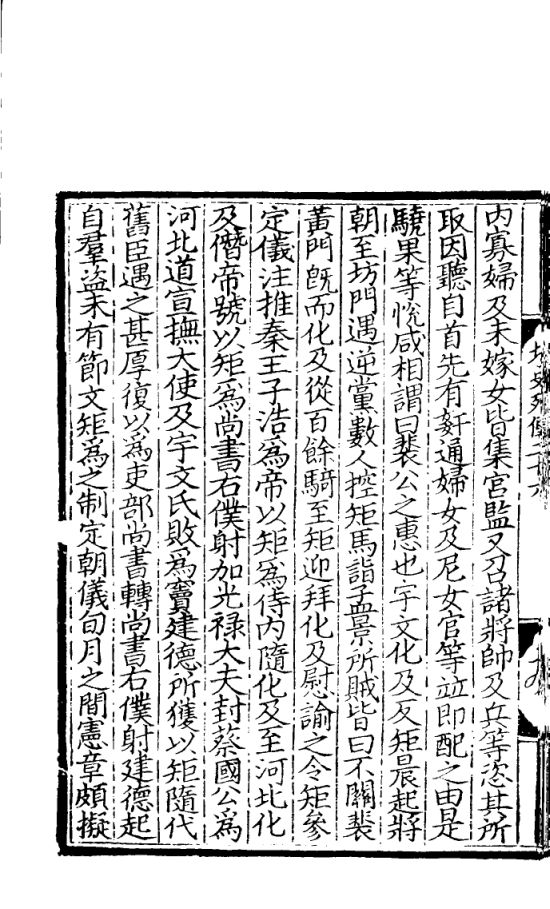 内寡婦及未嫁女皆集宮監又召諸將帥及兵等恣其所
取因聽自首先有姧通婦女及尼女官等並即配之由是
驍果等悅咸相謂曰裴公之惠也宇文化及反矩晨起將
朝至坊門遇逆黨數人控矩馬詣孟景所賊皆曰不關裴
黃門旣而化及從百餘騎至矩迎拜化及慰諭之令矩參
定儀注推秦王子浩爲帝以矩爲侍内隨化及至河北化
及僭帝號以矩爲尚書右僕射加光禄大夫封蔡國公爲
河北道宣撫大使及宇文氏敗爲竇建德所獲以矩隨代
舊臣遇之甚厚復以爲吏部尚書轉尚書右僕射建德起
自羣盜未有節文矩爲之制定朝儀旬月之間憲章頗擬
列傳二十六
九